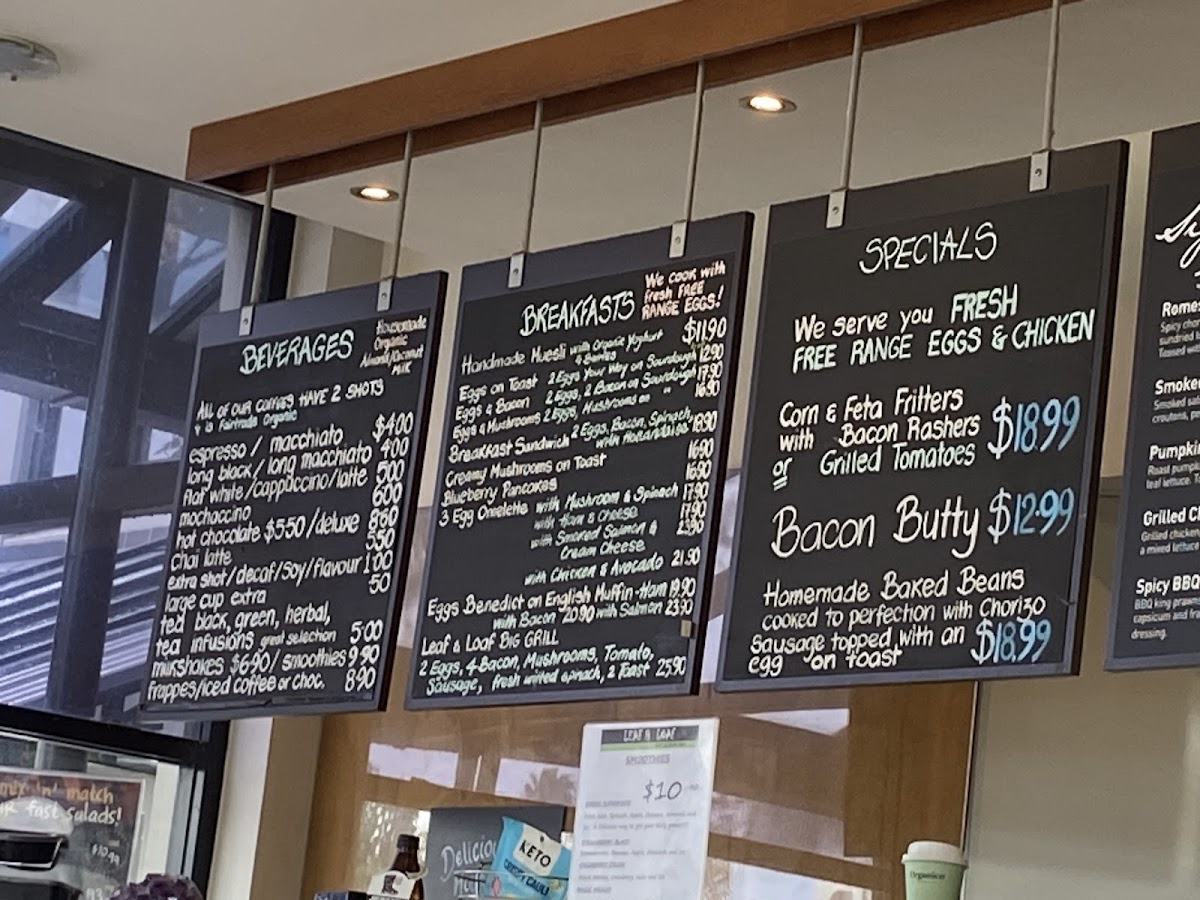 BEVERAGES
Housemade
Organic
Almond/Coconut
Milk
ALL OF OUR COFFEES HAVE 2 SHOTS
& is Fairtrade Organic
espresso / macchiato $4.00
long black / long macchiato 4.00
flat white / cappuccino / latte 5.00
mochaccino 6.00
hot chocolate $5.50 / deluxe 8.60
chai latte 5.50
extra shot / decaf / soy / flavour 1.00
large cup extra 50
tea black, green, herbal,
tea infusions great selection 5.00
milkshakes $6.90 / smoothies 9.90
frappes/iced coffee or choc. 8.90
BREAKFASTS
We cook with
fresh FREE
RANGE EGGS!
Handmade Muesli with Organic Yoghurt $11.90
& Berries
Eggs on Toast 2 Eggs Your Way on Sourdough 12.90
Eggs & Bacon 2 Eggs, 2 Bacon on Sourdough 17.90
Eggs & Mushrooms 2 Eggs, Mushrooms on " 16.90
Breakfast Sandwich 2 Eggs, Bacon, Spinach,
with Hollandaise 18.90
Creamy Mushrooms on Toast 16.90
Blueberry Pancakes 16.90
3 Egg Omelette with Mushroom & Spinach 17.90
with Ham & Cheese 17.90
with Smoked Salmon & 23.90
Cream Cheese
with Chicken & Avocado 21.90
Eggs Benedict on English Muffin-Ham 19.90
with Bacon 20.90 with Salmon 23.90
Leaf & Loaf BIG GRILL
2 Eggs, 4 Bacon, Mushrooms, Tomato,
Sausage, fresh wilted spinach, 2 Toast 25.90
SPECIALS
We serve you FRESH
FREE RANGE EGGS & CHICKEN
Corn & Feta Fritters
with Bacon Rashers $18.99
or Grilled Tomatoes
Bacon Butty $12.99
Homemade Baked Beans
cooked to perfection with Chorizo
Sausage topped with an $18.99
egg on toast
Smoked
Pumpkin
Roast pump
leaf lettuce. T
Grilled Ch
Grilled chicken
a mixed lettuce
Spicy BBQ
BBQ king prawn
capsicum and
dressing.
mix 'n' match
fast salads!
LEAF & LOAF
SMOOTHIES
$10
Delicious
KETO
Organico